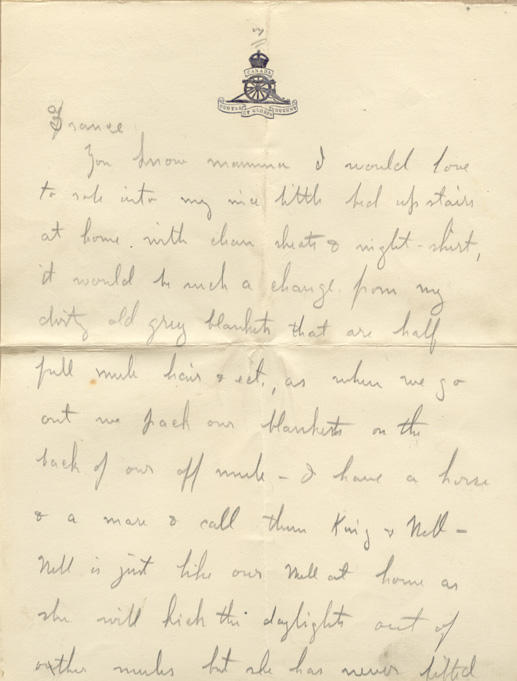 CANADA
France
You know mamma I would love
to role into my nice little bed up stairs
at home. with clean sheats & night-shirt,
it would be such a change from my
dirty old grey blankets that are half
full mule hair & ect., as when we go
out we pack our blankets on the
back of our off mule - I have a horse
& a mare & call them King & Nell -
Nell is just like our Nell at home as
she will kick the daylights out of
other mules but she has never lifted